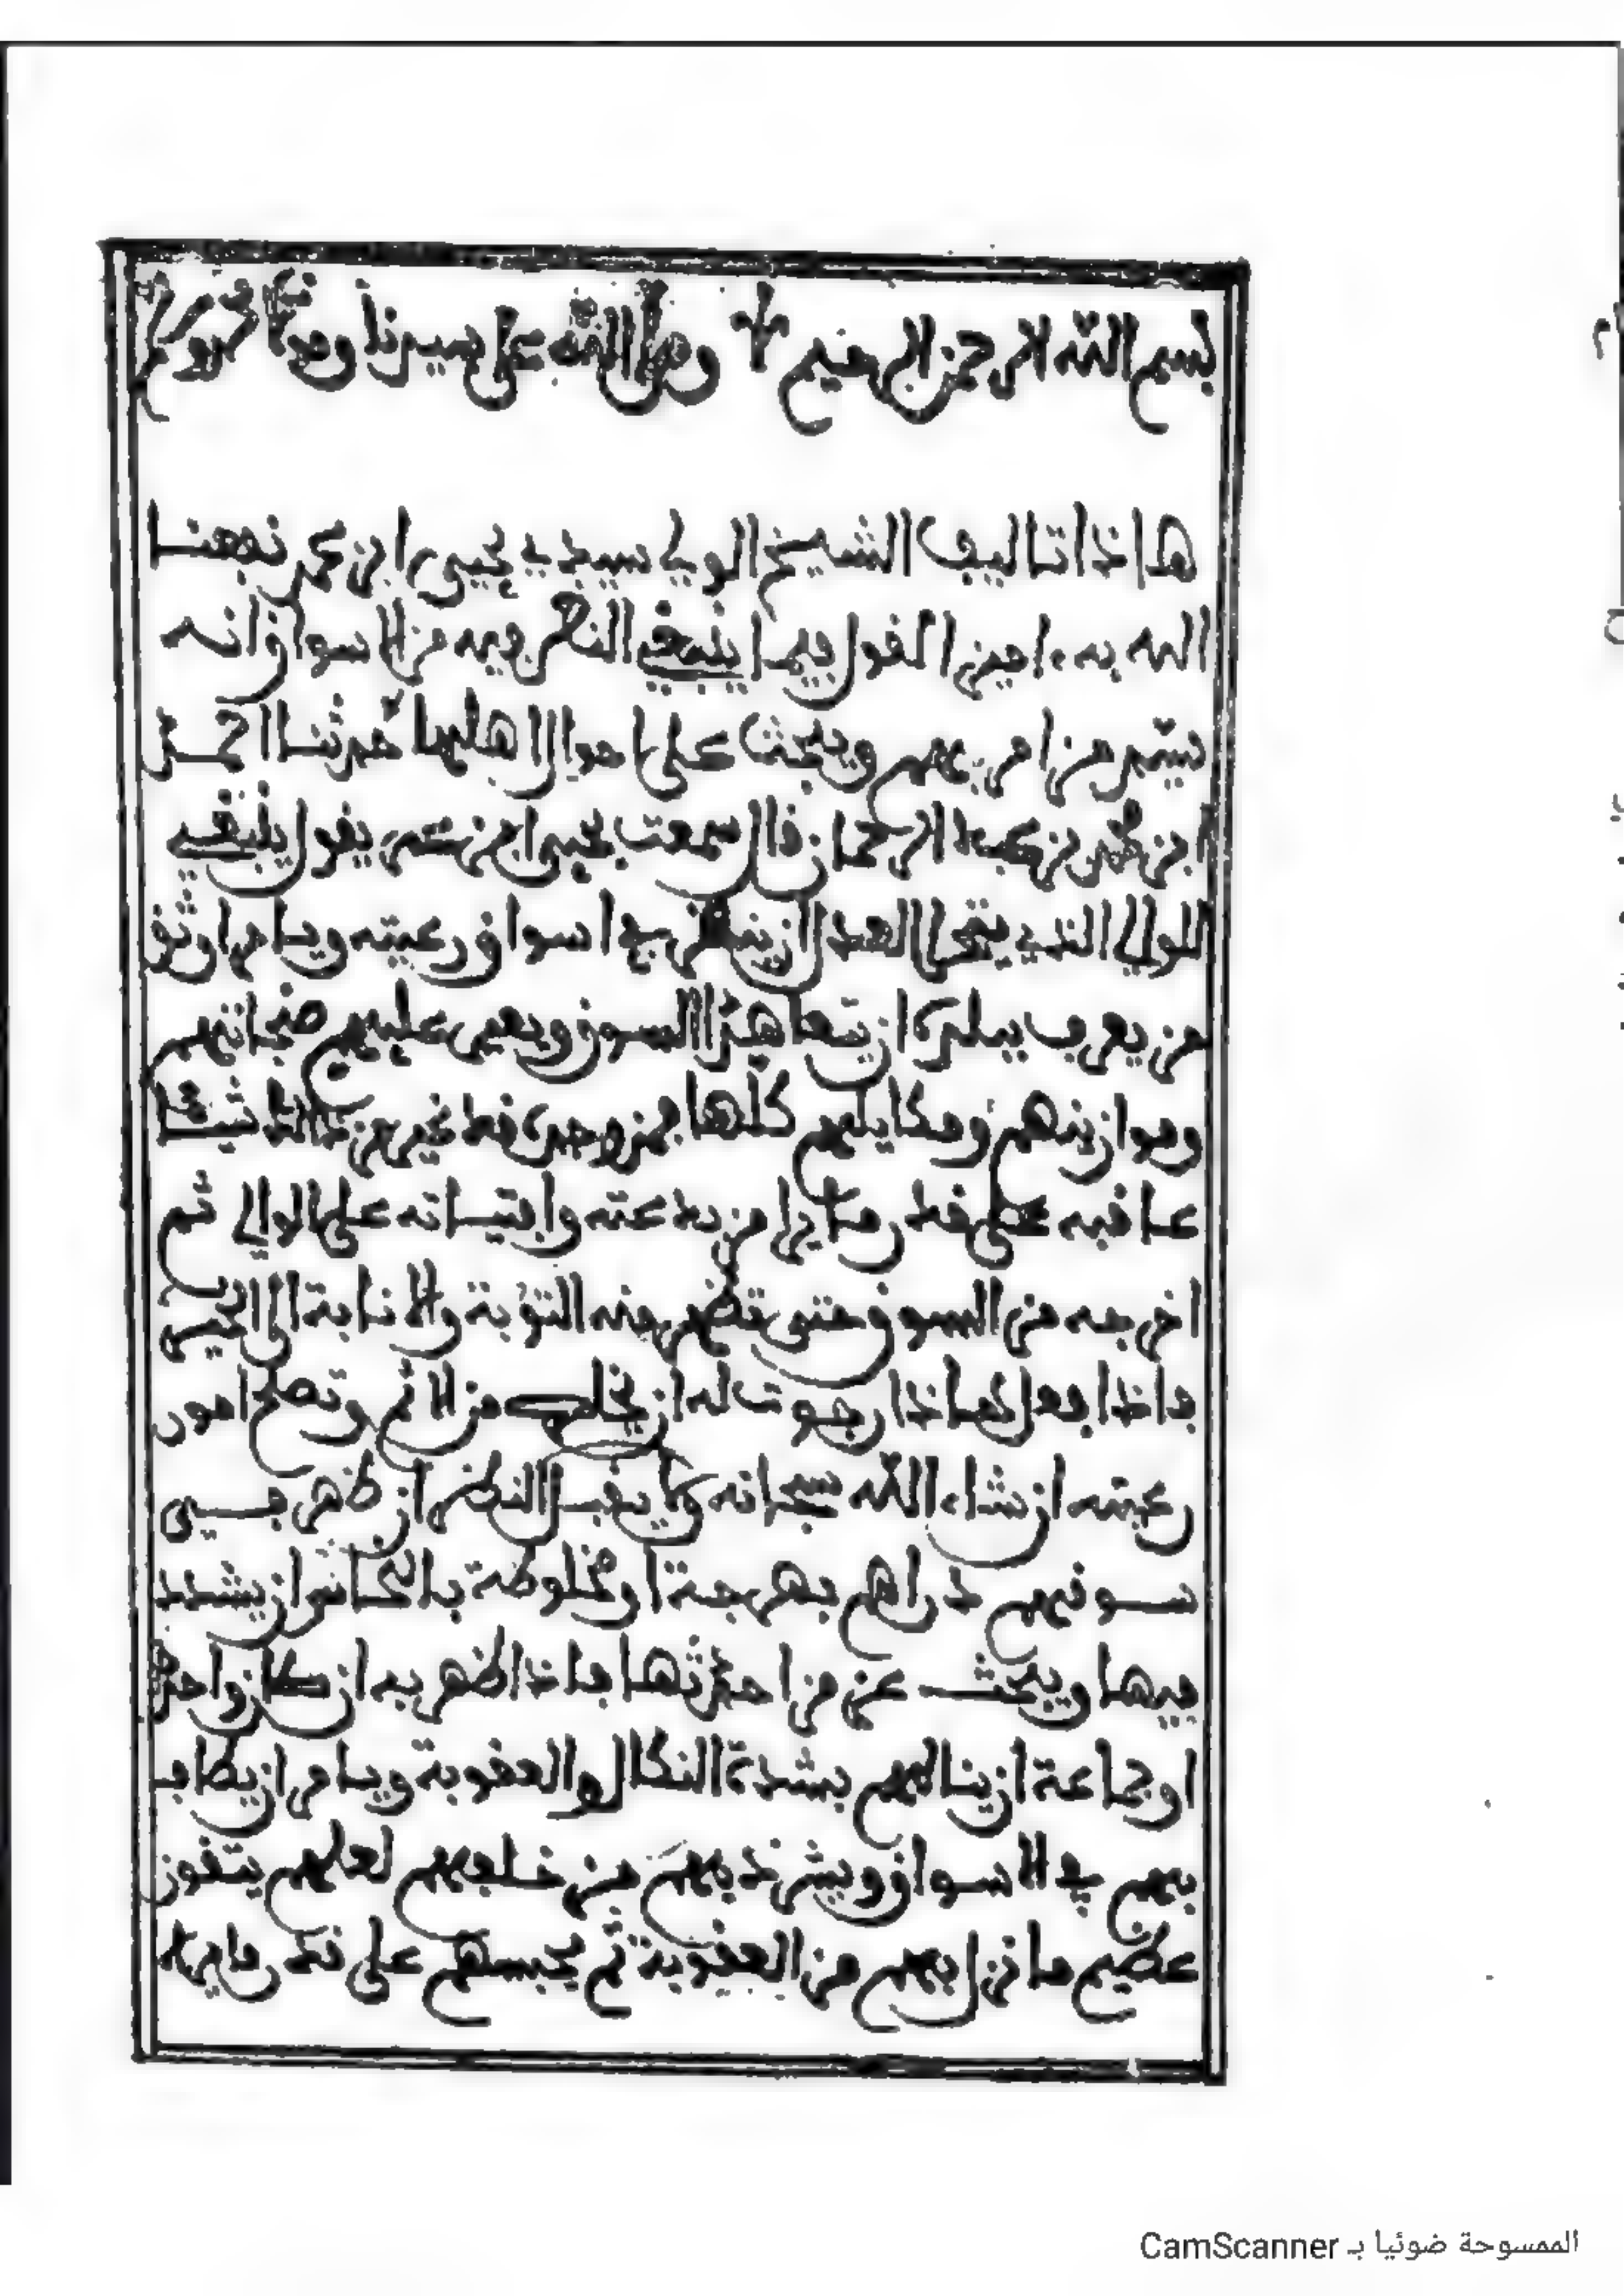 بسم الله الرحمن الرحيم وصلى الله على سيدنا ومولنا محمد
هاذا تاليف الشيخ الولي سيدي يحيى ابن عمر نفعنا
الله به ءامين القول فيما ينبغي النظر فيه من الاسواق انه
من امر بهم ويبحث على احوال اهليها حدثنا احمد
ابن محمد بن عبد الرحمان قال سمعت يحيى ابن عمر يقول ينبغي
للوالي الذي يتحرا العدل ان ينظر في اسواق رعيته ويامر اوثق
من يعرف ببلده ان يتعاهد السوق ويعير عليهم صنجاتهم
وموازينهم ومكايلهم كلها فمن وجده قد غير من ذالك شيئا
عاقبه على قدر ما يرا من بدعته وافتياته على الوالي ثم
اخرجه من السوق حتى تظهر منه التوبة والانابة الى الخير
فاذا فعل هاذا رجوت له ان يخلص من الاثم وتصلح امور
رعيته ان شاء الله سبحانه ولا يغفل النظر ان ظهر في
سوقهم دراهم بهرجة او مخلوطة بالنحاس ان يشدد
فيها ويبحث عن من احدثها فاذا ظهر به ان كان واحدا
او جماعة ان ينالهم بشدة النكال والعقوبة ويامر ان يطاف
بهم في الاسواق ويشرد بهم من خلفهم لعلهم يتقون
عظيم ما نزل بهم من العقوبة ثم يحبسهم على قدر ما يرا
الممسوحة ضوئيا بـ CamScanner